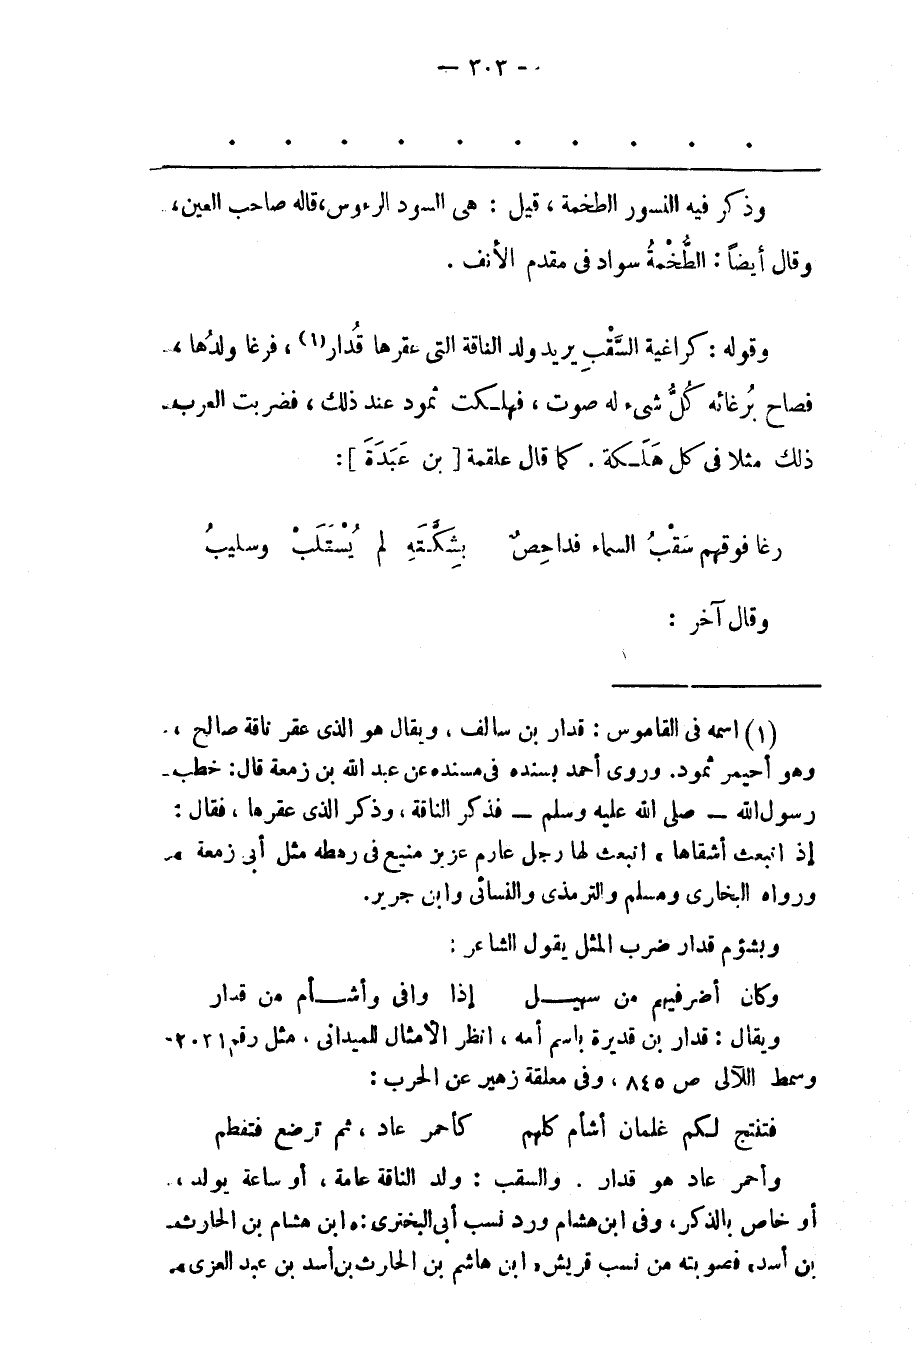 — ٣٠٣ —
. . . . . . . . . .
وذكر فيه النسور الطخمة ، قيل : هى السود الرءوس،قاله صاحب العين،
وقال أيضاً : الطُّخْمةُ سواد فى مقدم الأنف .
وقوله : كراغية السَّقْبِ يريد ولد الناقة التى عقرها قُدار(١) ، فرغا ولدُها ،
فصاح بُرغائه كُلُّ شىء له صوت ، فهلكت ثمود عند ذلك ، فضربت العرب
ذلك مثلا فى كل هَلَكة . كما قال علقمة [ بن عَبَدَةَ ] :
رغا فوقهم سَقْبُ السماء فداحِصٌ بِشكَّتَهِ لم يُسْتَلَبْ وسليبُ
وقال آخر :
(١) اسمه فى القاموس : قدار بن سالف ، ويقال هو الذى عقر ناقة صالح ،
وهو أحيمر ثمود. وروى أحمد بسنده فى مسنده عن عبد الله بن زمعة قال : خطب
رسول الله — صلى الله عليه وسلم — فذكر الناقة ، وذكر الذى عقرها ، فقال :
إذ انبعث أشقاها ، انبعث لها رجل عارم عزيز منيع فى رهطه مثل أبى زمعة
ورواه البخارى ومسلم والترمذى والنسائى وابن جرير.
وبشؤم قدار ضرب المثل يقول الشاعر :
وكان أضرفيهم من سهيل إذا وافى وأشأم من قدار
ويقال : قدار بن قديرة باسم أمه ، انظر الأمثال للميدانى ، مثل رقم ٢٠٣١
وسمط اللآلى ص ٨٤٥ ، وفى معلقة زهير عن الحرب :
فتنتج لكم غلمان أشأم كلهم كأحمر عاد ، ثم ترضع فتفطم
وأحمر عاد هو قدار . والسقب : ولد الناقة عامة ، أو ساعة يولد ،
أو خاص بالذكر، وفى ابن هشام ورد نسب أبى البخترى : « ابن هشام بن الحارث
بن أسد» فصوبته من نسب قريش« ابن هاشم بن الحارث بن أسد بن عبد العزى »